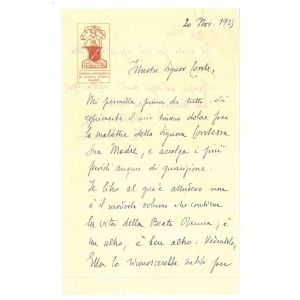 20 Nov. 1935
Illustre Signor Conte,
Mi permetta, prima di tutto, di
esprimerle il mio sincero dolore per
la malattia della Signora Contessa
Sua Madre, e accolga i più
fervidi auguri di guarigione.
Il libro al quale alludevo non
è il modesto volume che contiene
la vita della Beata , è
un altro, è ben altro. Vedendolo,
Ella lo riconoscerebbe subito per